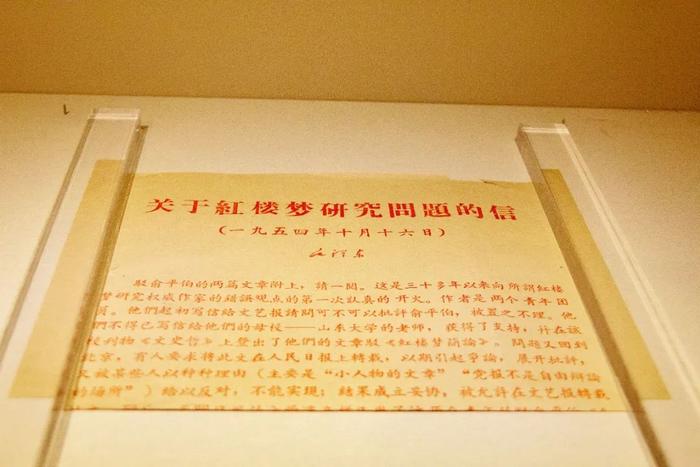 关于紅楼梦研究問題的信
(一九五四年十月十六日)
毛泽东
駁俞平伯的两篇文章附上，請一閱。这是三十多年以来向所謂紅楼
梦研究权威作家的錯誤观点的第一次认真的开火。作者是两个青年团
員。他們起初写信給文艺报請問可不可以批評俞平伯，被置之不理。他
們不得已写信給他們的母校——山东大学的老师，获得了支持，幷在該
校刊物《文史哲》上登出了他們的文章駁《紅楼梦簡論》。問題又回到
北京，有人要求将此文在人民日报上轉載，以期引起爭論，展开批評，
又被某些人以种种理由（主要是“小人物的文章”“党报不是自由辯論
的場所”）給以反对，不能实現；結果成立妥协，被允許在文艺报轉載